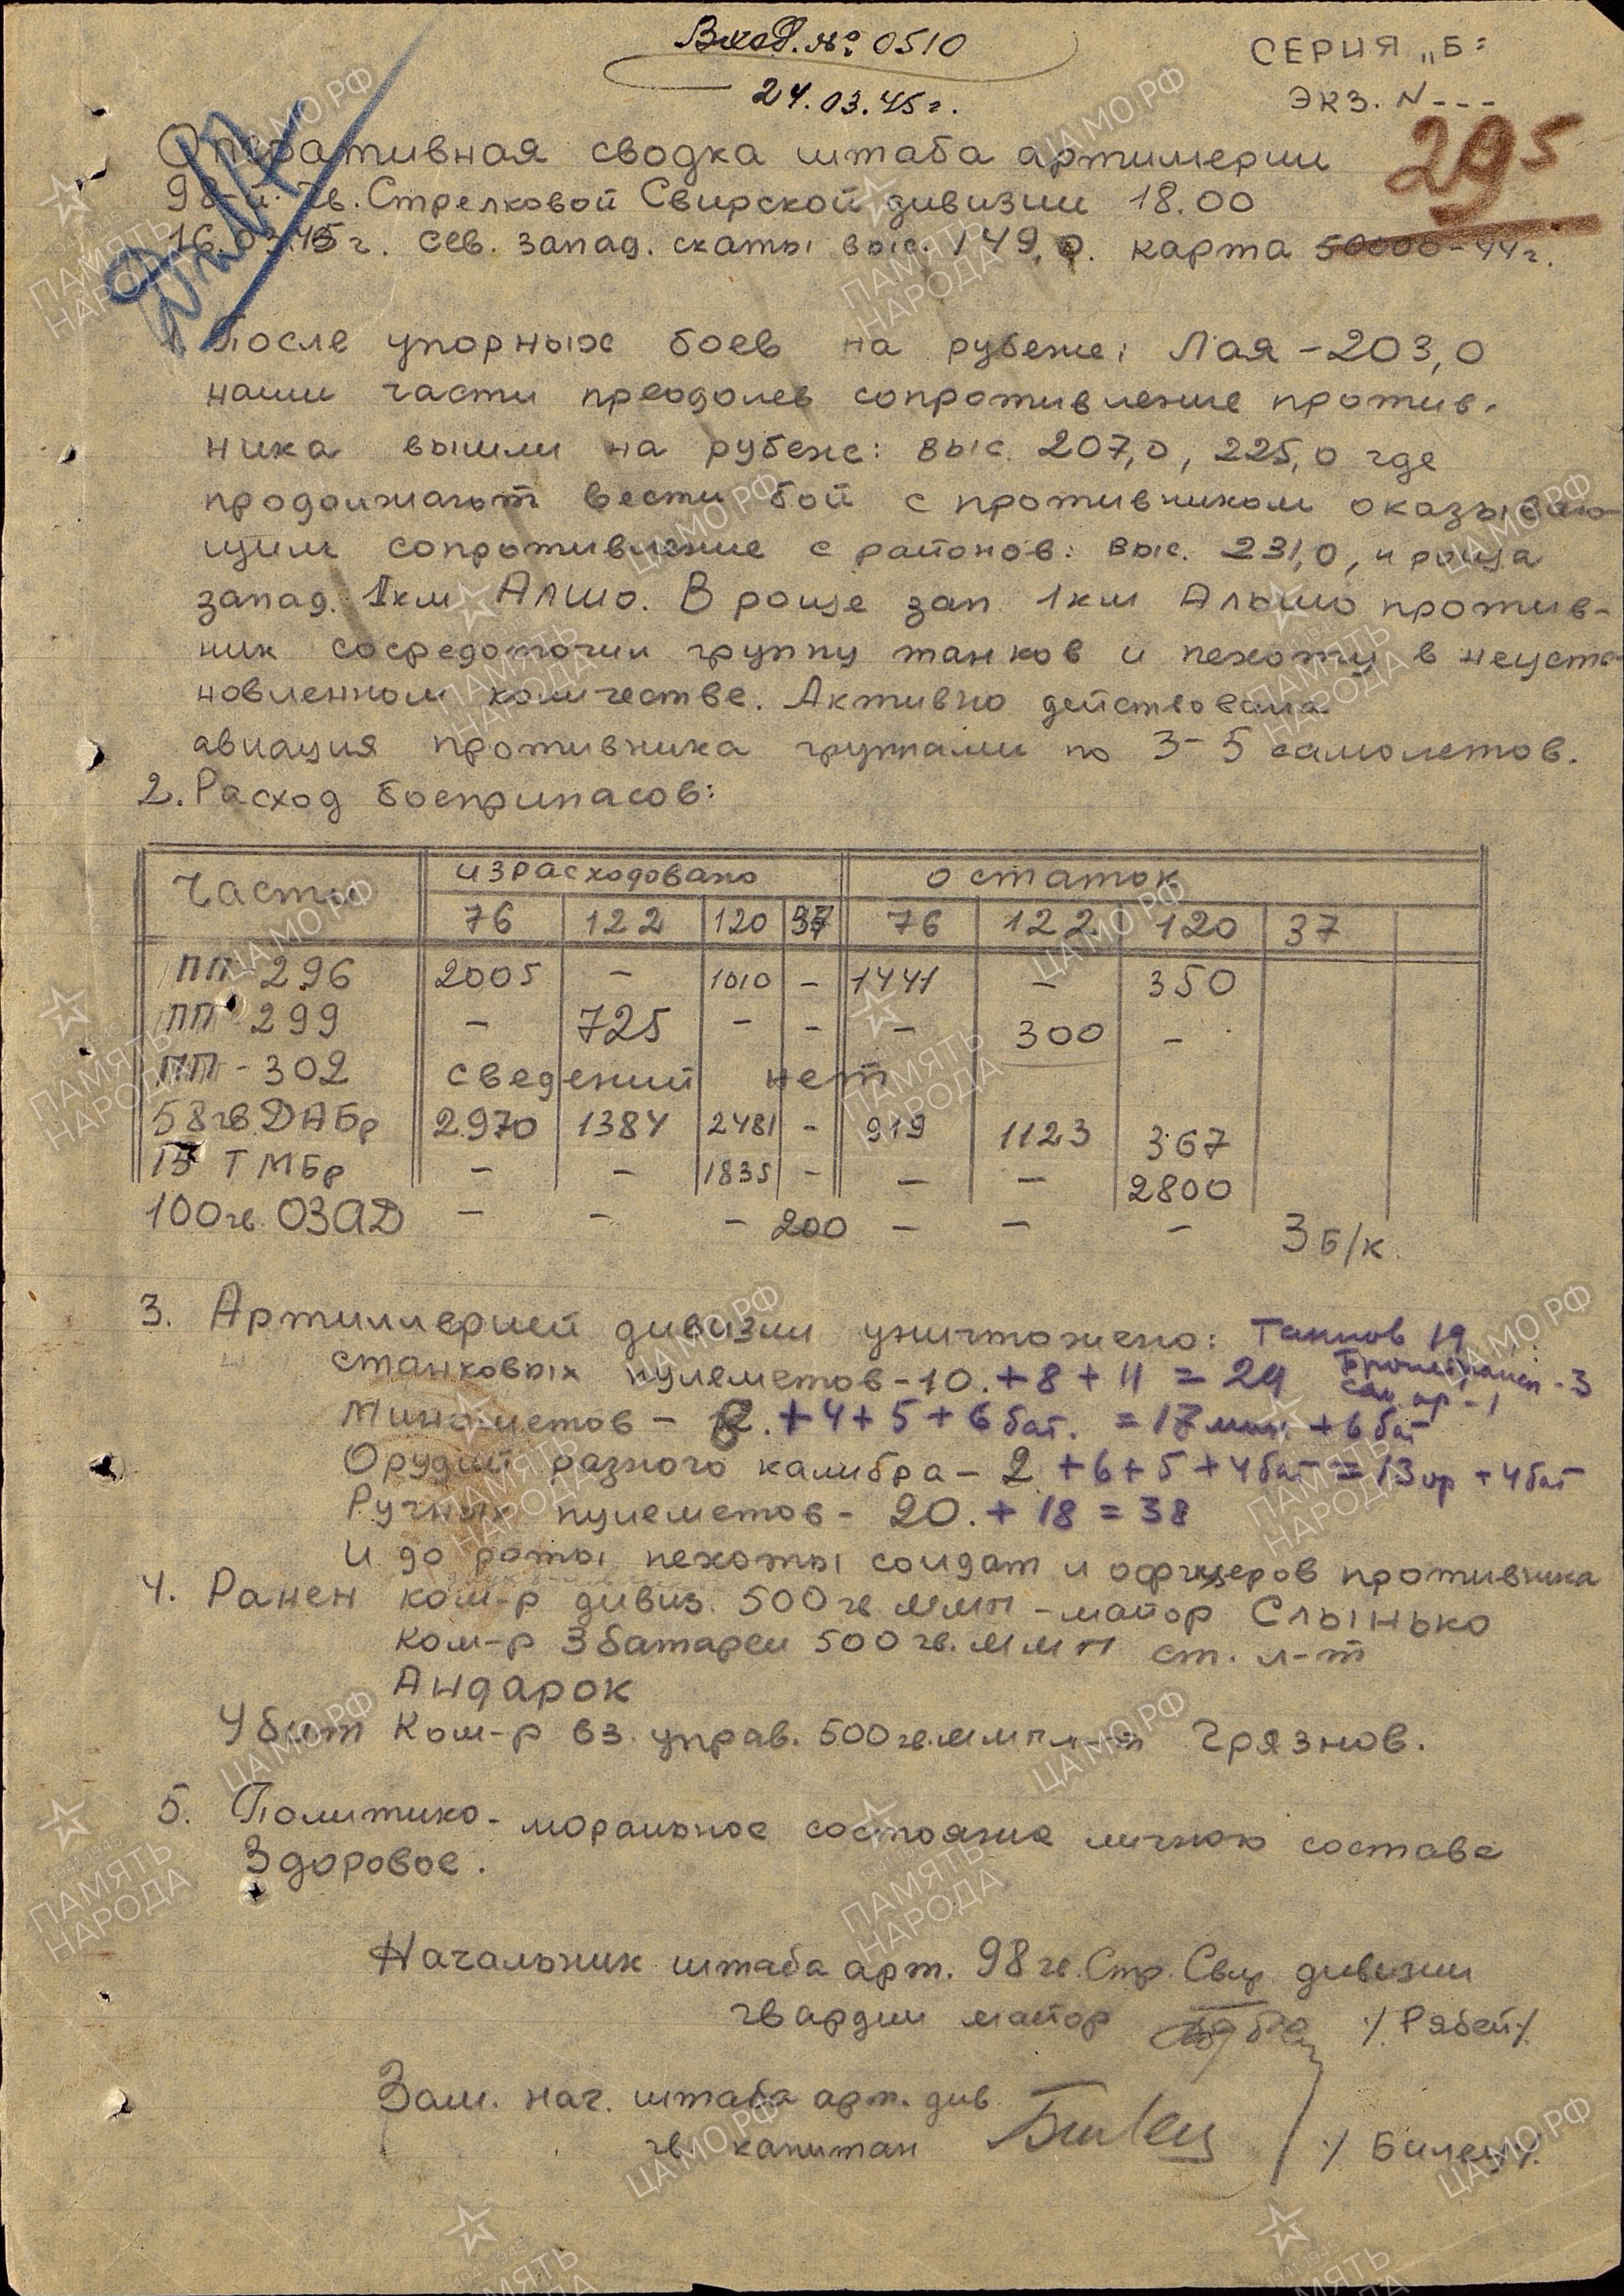 Вход. № 0510
24.03.45г.
СЕРИЯ „Б"
ЭКЗ. N---
295
Оперативная сводка штаба артиллерии
98-й Гв. Стрелковой Свирской дивизии 18.00
16.03.45г. сев. запад. скаты выс. 149,0. карта 50000-44г.
После упорных боев на рубеже: Лая - 203,0
наши части преодолев сопротивление против-
ника вышли на рубеж: выс. 207,0, 225,0 где
продолжают вести бой с противником оказываю
щим сопротивление с районов: выс. 231,0, и роща
запад. 1км Алшо. В роще зап 1км Альшо против-
ник сосредоточил группу танков и пехоты в неуста
новленном количестве. Активно действовала
авиация противника группами по 3-5 самолетов.
2. Расход боеприпасов:
Части израсходовано остаток
76 122 120 37 76 122 120 37
ПП 296 2005 - 1010 - 1441 - 350
ПП - 299 - 725 - - - 300 -
ПП - 302 сведений нет
58 гв. ДАБр 2.970 1384 2481 - 919 1123 367
15 ТМБр - - 1835 - - - 2800
100 гв. ОЗАД - - - 200 - - - 3 Б/К.
3. Артиллерией дивизии уничтожено: Танков 19
станковых пулеметов - 10. + 8 + 11 = 29 Бронетрансп - 3
сам. ор - 1
Минометов - 8. + 4 + 5 + 6 бат. = 17 мин. + 6 бат
Орудий разного калибра - 2 + 6 + 5 + 4 бат = 13 ор + 4 бат
Ручных пулеметов - 20. + 18 = 38
И до роты пехоты солдат и офицеров противника
4. Ранен ком-р дивиз. 500 гв ММП - майор Слынько
Ком-р 3 батареи 500 гв. ММП ст. л-т
Андарок
Убит Ком-р вз. управ. 500 гв. ММП л-т Грязнов.
5. Политико-моральное состояние личного состава
Здоровое.
Начальник штаба арт. 98 гв. Стр. Свир дивизии
гвардии майор /Рябей/
Зам. нач. штаба арт. див
гв капитан /Билец/
ЦАМО РФ
ПАМЯТЬ НАРОДА
1941-1945